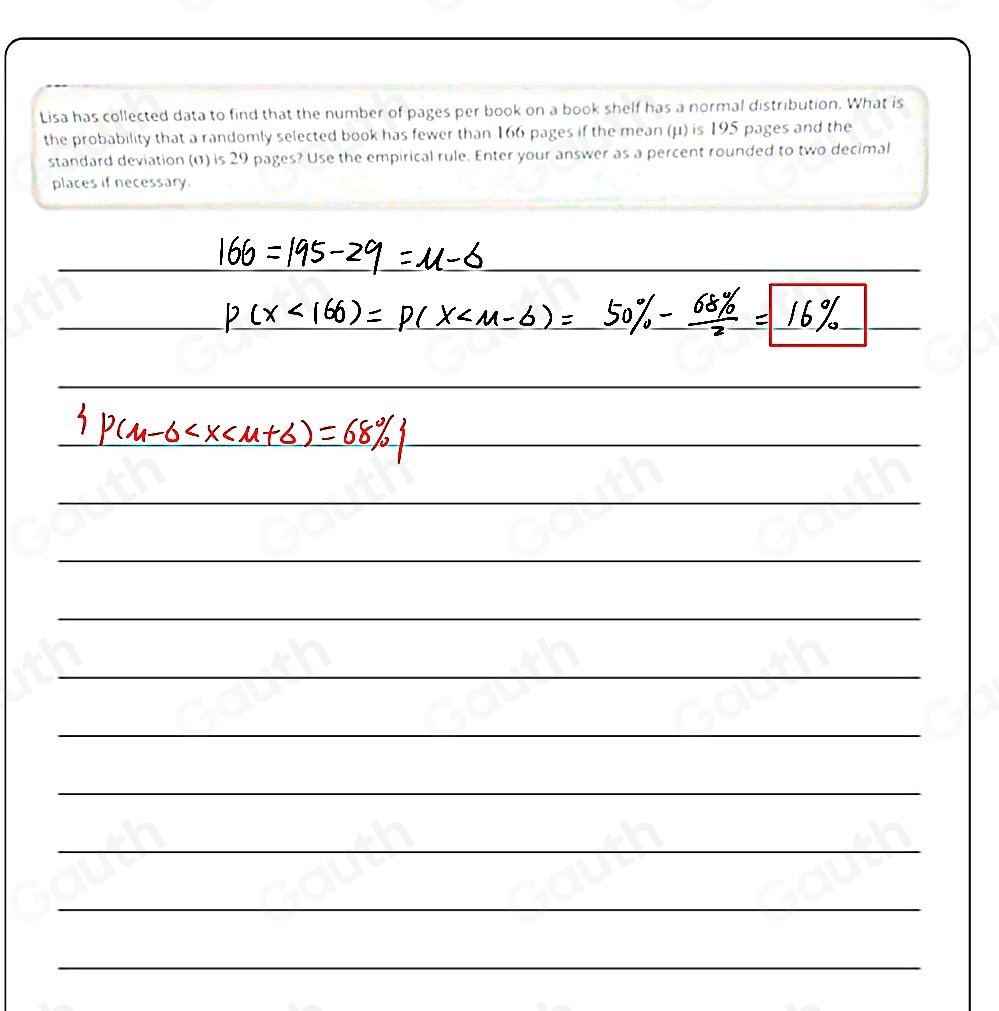 Lisa has collected data to find that the number of pages per book on a book shelf has a normal distribution. What is
the probability that a randomly selected book has fewer than 166 pages if the mean (μ) is 195 pages and the
standard deviation (σ) is 29 pages? Use the empirical rule. Enter your answer as a percent rounded to two decimal
places if necessary.
166 = 195 - 29 = μ - σ
P(X < 166) = P(X < μ - σ) = 50% - 68%/2 = 16%
{P(μ - σ < X < μ + σ) = 68%}
Gauth